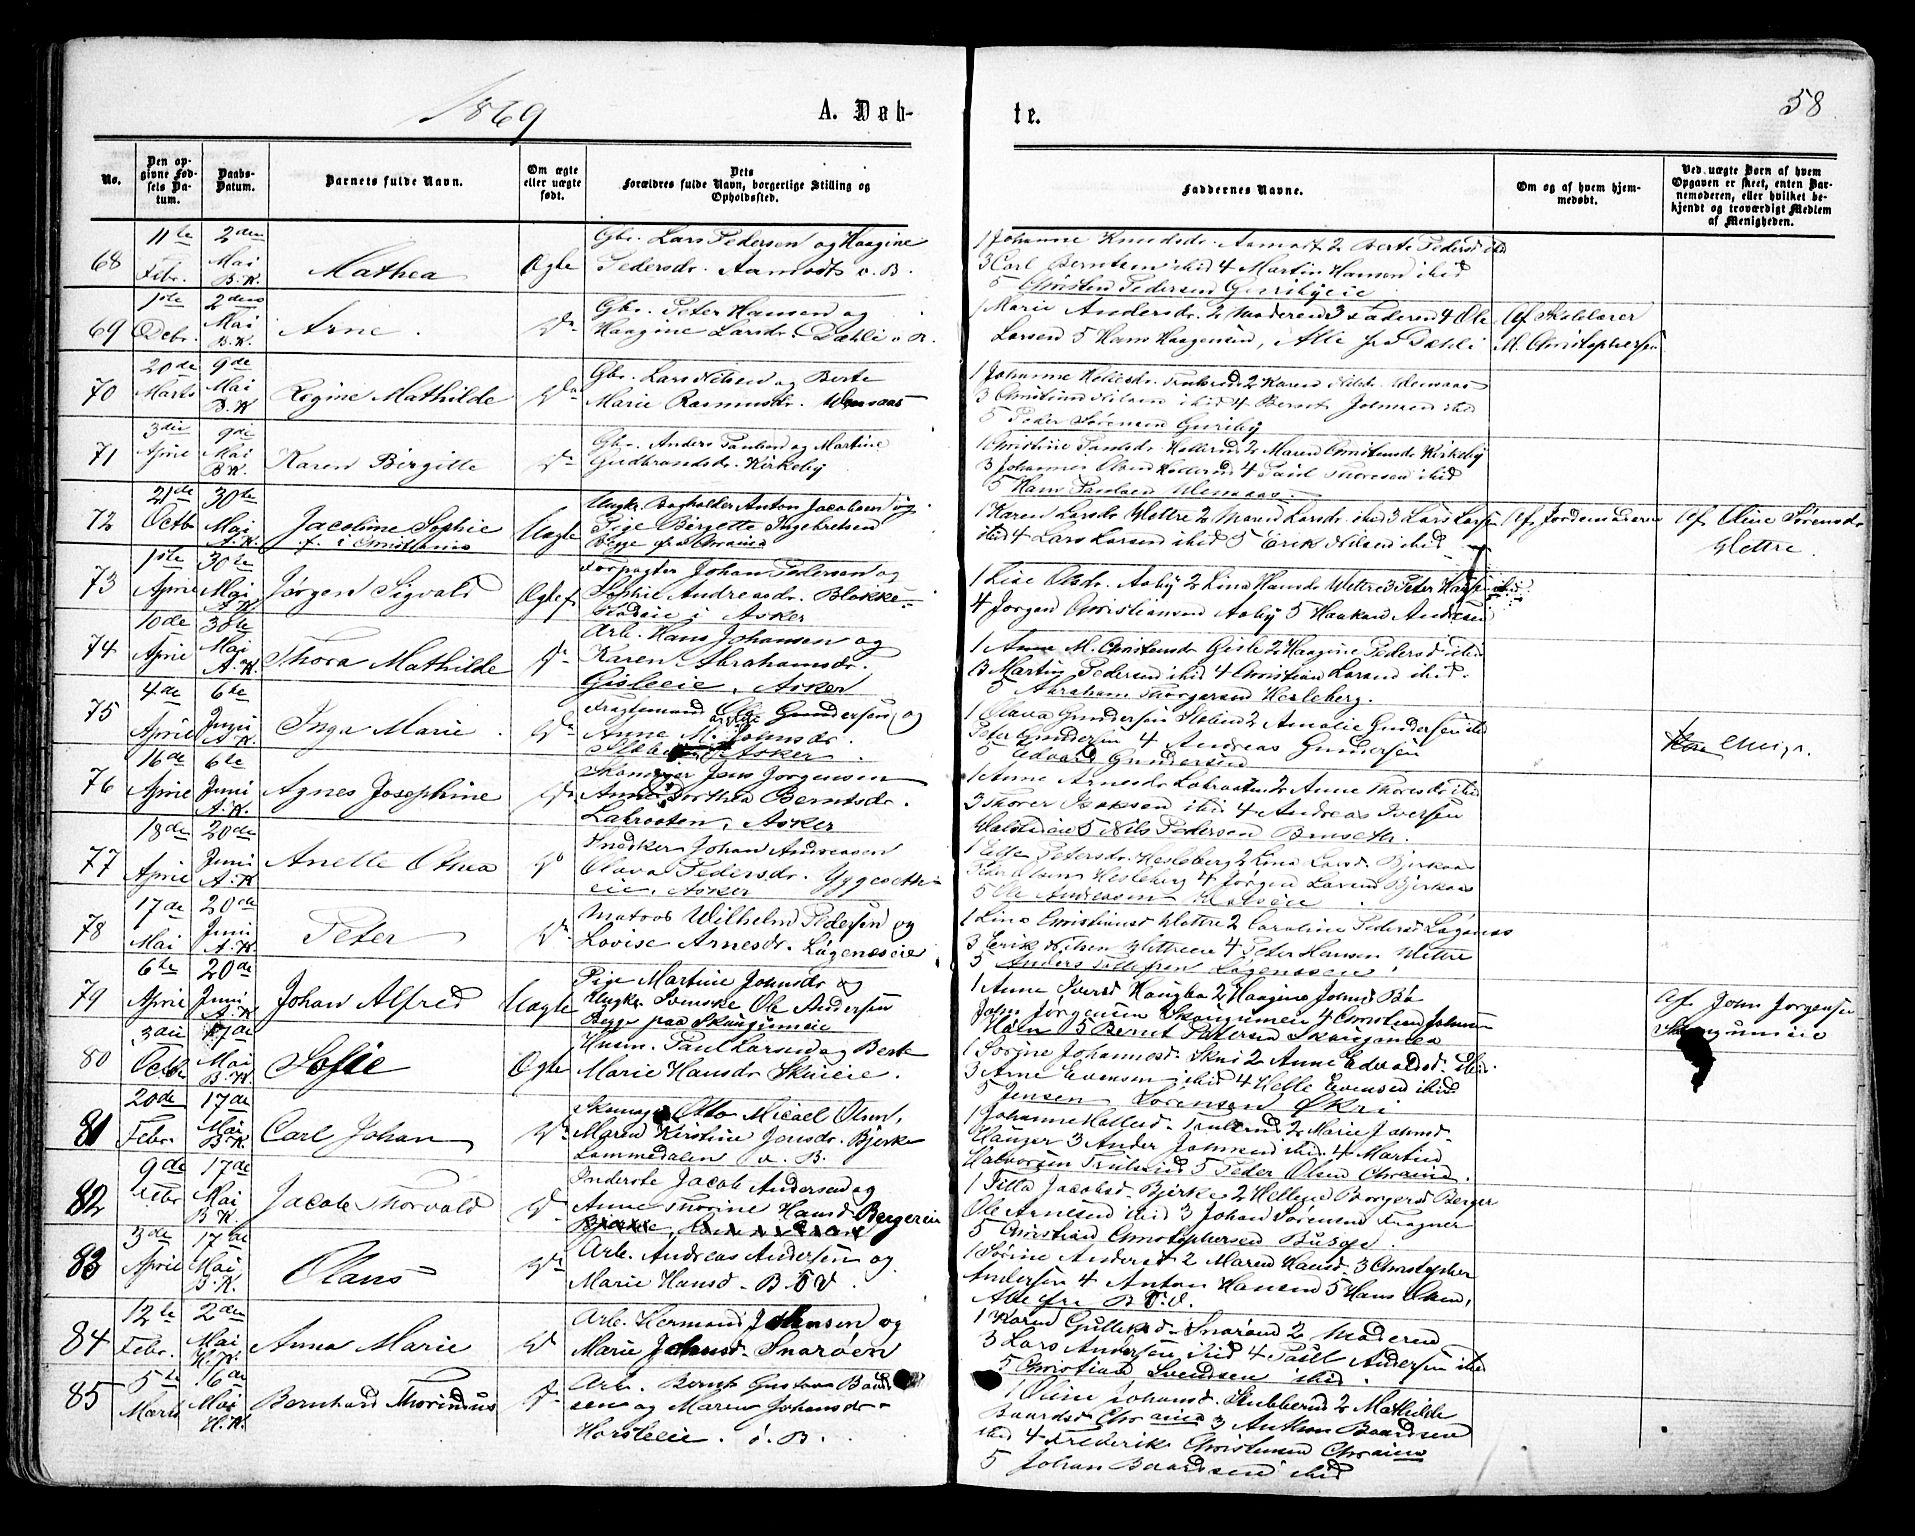 1869
A. Døb-
te.
58
No.
Den op-
givne Fød-
sels Da-
tum.
Daabs-
Datum.
Barnets fulde Navn.
Om ægte
eller uægte
født.
Dets
Forældres fulde Navn, borgerlige Stilling og
Opholdssted.
Faddernes Navne.
Om og af hvem hjem-
medøbt.
Ved uægte Børn af hvem
Opgaven er skeet, enten Bar-
nemoderen, eller hvilket be-
kjendt og troværdigt Medlem
af Menigheden.
68
11te
Febr.
2den
Mai
B. K.
Mathea
Ægte
Gbr. Lars Pedersen og Haagine
Pedersdr. Aamodt v. B.
1 Johanne Knudsdr. Aamodt 2 Berte Pedersd ibid
3 Carl Berntsen ibid 4 Martin Hansen ibid
5 Christen Pedersen
69
1ste
Debr.
2den
Mai
B. K.
Arne
Do
Gbr. Peter Hansen og
Haagine Larsdr. Dæhli
1 Marie Andersdr. 2 Moderen 3 Faderen 4 Ole
Larsen 5 Hans Haagensen, Alle fra Dæhli
Af Skolelærer
M. Christophersen
70
20de
Marts
9de
Mai
B. K
Regine Mathilde
Do
Gbr. Lars Nilsen og Berte
Marie Rasmusdr.
1 Johanne 2 Karen
3 Christian Nilsen ibid 4 Bernt Johnsen ibid
5 Peder Sørensen Guriby
71
3die
April
9de
Mai
B K.
Karen Birgitte
Do
Gbr. Anders Paulsen og Martine
Gudbrandsdr. Kirkeby
1 Christine 2 Maren Christensdr Kirkeby
3 Johannes Olsen 4 Paul Thoresen ibid
5 Hans Paulsen
72
21de
Octb
30te
Mai
A. K.
Jacobine Sophie
f. i Christiania
Uægte
Ungkr. Bogholder Anton Jacobsen og
Pige Birgette Ingebretsen
Begge fra Chrania
1 Karen Larsdr Vettre 2 Maren Larsdr ibid 3 Lars Larsen
ibid 4 Lars Larsen ibid 5 Erik Nilsen ibid
Af Jordemoderen
Af Oline Sørensdr
Vettre.
73
1ste
April
30te
Mai
A. K.
Jørgen Sigvald
Ægte
Forpagter Johan Pedersen og
Sophie Andreasdr. Blakke-
i Asker
1 Lise Olsdr. Aaby 2 Lina Hansdr Vettre 3 Peter Hansen ibid
4 Jørgen Christiansen Aaby 5 Haakon Andresen
74
10de
April
30te
Mai
A. K.
Thora Mathilde
Do
Arb. Hans Johansen og
Karen Abrahamsdr.
Gisleeie. Asker
1 Anne M. Christensdr Gisle 2 Haagine Pedersd ibid
3 Martin Pedersen ibid 4 Christian Larsen ibid.
5 Abraham Thorgersen Hesleberg.
75
4de
April
6te
Juni
A. K.
Inga Marie
Do
Fragtemand Ole Gundersen og
Anne M. Johnsdr.
Asker
1 Olava Gundersen 2 Amalie Gundersen ibid
Peter Gundersen 4 Andreas Gundersen
5 Edvard Gundersen
76
16de
April
6te
Juni
A. K.
Agnes Josephine
Do
Skomager Jens Jørgensen
Anne Dorthea Berntsdr.
Labraaten, Asker
1 Anne Arnesdr Labraaten 2 Anne Thoresdr ibid
3 Thorer Isaksen ibid 4 Andreas Iversen
5 Nils Pedersen
77
18de
April
20de
Juni
A. K
Anette Othea
Do
Snedker Johan Andreasen
Olava Pedersdr.
eie. Asker
1 Petersdr. Hesleberg 2 Lina Larsd Bjerkaas
Olsen Hesleberg 4 Jørgen Larsen Bjerkaas
5 Ole Andreasen
78
17de
Mai
20de
Juni
A. K.
Peter
Do
Matros Wilhelm Pedersen og
Lovise Arnesdr. Løgenæseie
1 Lina Christiansd Vettre 2 Caroline Pedersd Løgenæs
3 Erik Nilsen Vettreeie 4 Peter Hansen Vettre
5 Anders
79
6te
April
20de
Juni
A. K
Johan Alfred
Uægte
Pige Martine Johnsdr og
Ungkr. Svenske Ole Andersen
Begge paa Skaugumeie
1 Anne Iversd 2 Haagine Johnsd Bø
John Jørgensen Skaugumeie 4 Christian Johnsen
5 Bernt Pedersen
Af John Jørgensen
80
3die
Octbr
17de
Mai
B. K.
Sofie
Ægte
Husm. Paul Larsen og Berte
Marie Hansdr Skuieie.
1 Sorine Johannesd. Skui 2 Anne Edvardsd. ibid.
3 Arne Evensen ibid 4 Helle Evensen ibid
5 Jensen Sørensen Økri
81
20de
Febr.
17de
Mai
B K.
Carl Johan
Do
Skomager Otto Micael Olsen,
Maren Kirstine Jonsdr. Bjerke
Lommedalen v. B.
1 Johanne 2 Marie Johnsd.
Hauger 3 Ander Johnsen ibid 4 Martin
Halvorsen 5 Peder Olsen Chrania.
82
9de
Febr
17de
Mai
B K.
Jacob Thorvald
Do
Inderste Jacob Andersen og
Anne Thorine Hansd Bergereie
1 Jacobsd. Bjerke 2 Berger
Ole Arnesen ibid 3 Johan Sørensen
5 Christian Christophersen
83
3de
April
17de
Mai
B. K.
Olaus
Do
Arb. Andreas Andersen og
Marie Hansd. B. V.
1 Sørine Andersd 2 Maren Hansd. 3 Christopher
Andersen 4 Anton Hansen 5 Hans Olsen,
Alle fra B. V.
84
12te
Febr.
2den
Mai
H. K.
Anna Marie
Do
Arb. Hermand Johansen og
Marie Johnsd. Snarøen
1 Karen Gulliksd. Snarøen 2 Moderen
3 Lars Andersen ibid 4 Paul Andersen ibid
5 Christian Svendsen ibid.
85
5te
Marts
16de
Mai
H. K.
Bernhard Thorinius
Do
Arb. Bernt Gustav Baard
sen og Maren Johansdr.
Horsleeie. v. B.
1 Oline Johansd. Stubberud 2 Mathilde
Baardsd Chrania 3 Anthon Baardsen
ibid 4 Frederik Christensen Chrania
5 Johan Baardsen ibid